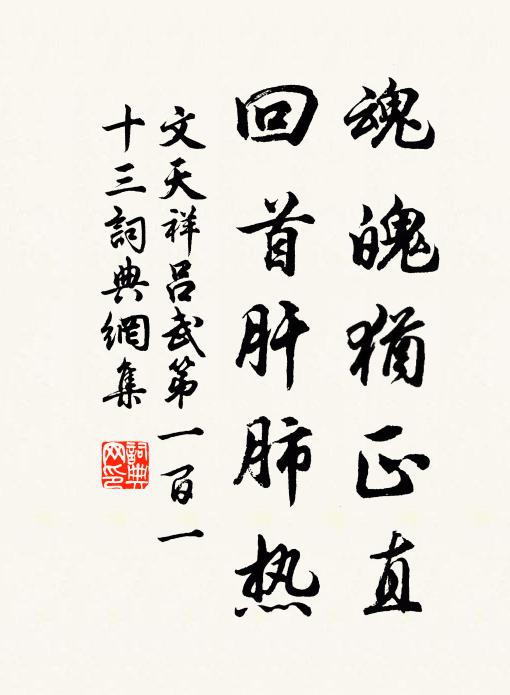 魂魄猶正直
回首肝肺热
文天祥吕武第一百一
十三詞典網集
詞典
网印